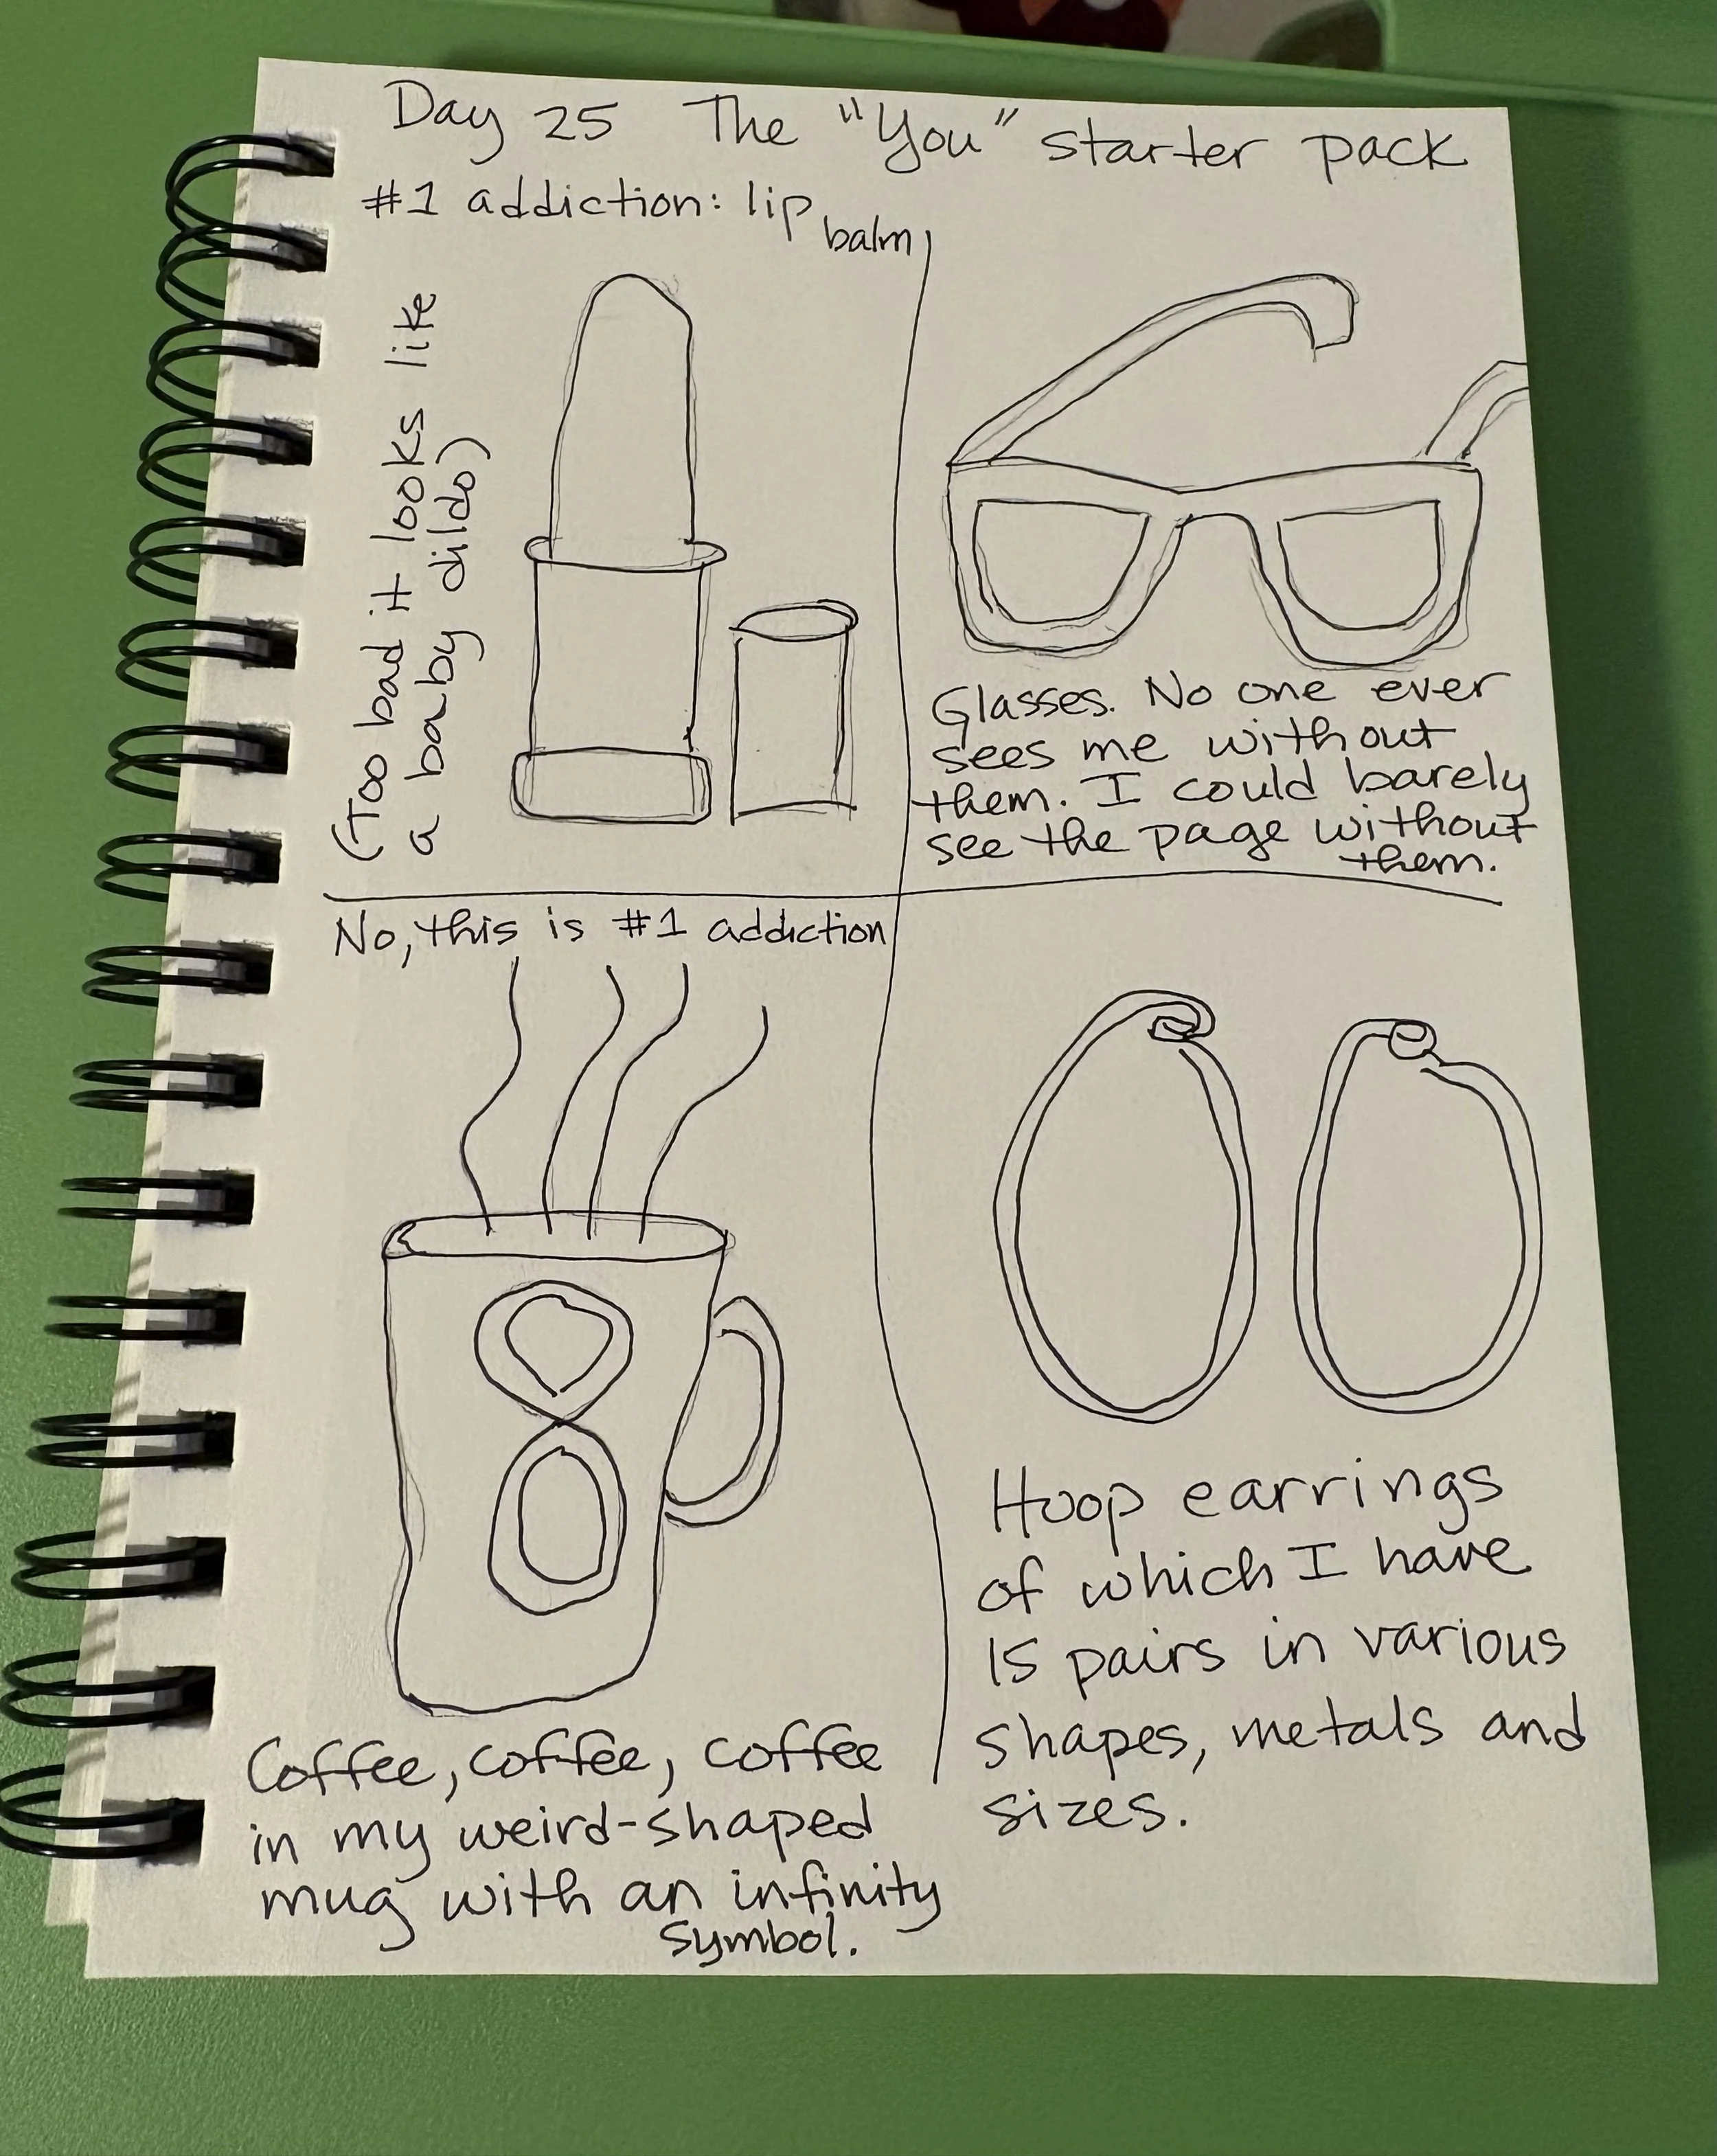 Day 25 The "You" starter pack
#1 addiction: lip
balm
(Too bad it looks like
a baby dildo)
Glasses. No one ever
sees me without
them. I could barely
see the page without
them.
No, this is #1 addiction
Coffee, coffee, coffee
in my weird-shaped
mug with an infinity
symbol.
Hoop earrings
of which I have
15 pairs in various
shapes, metals and
sizes.